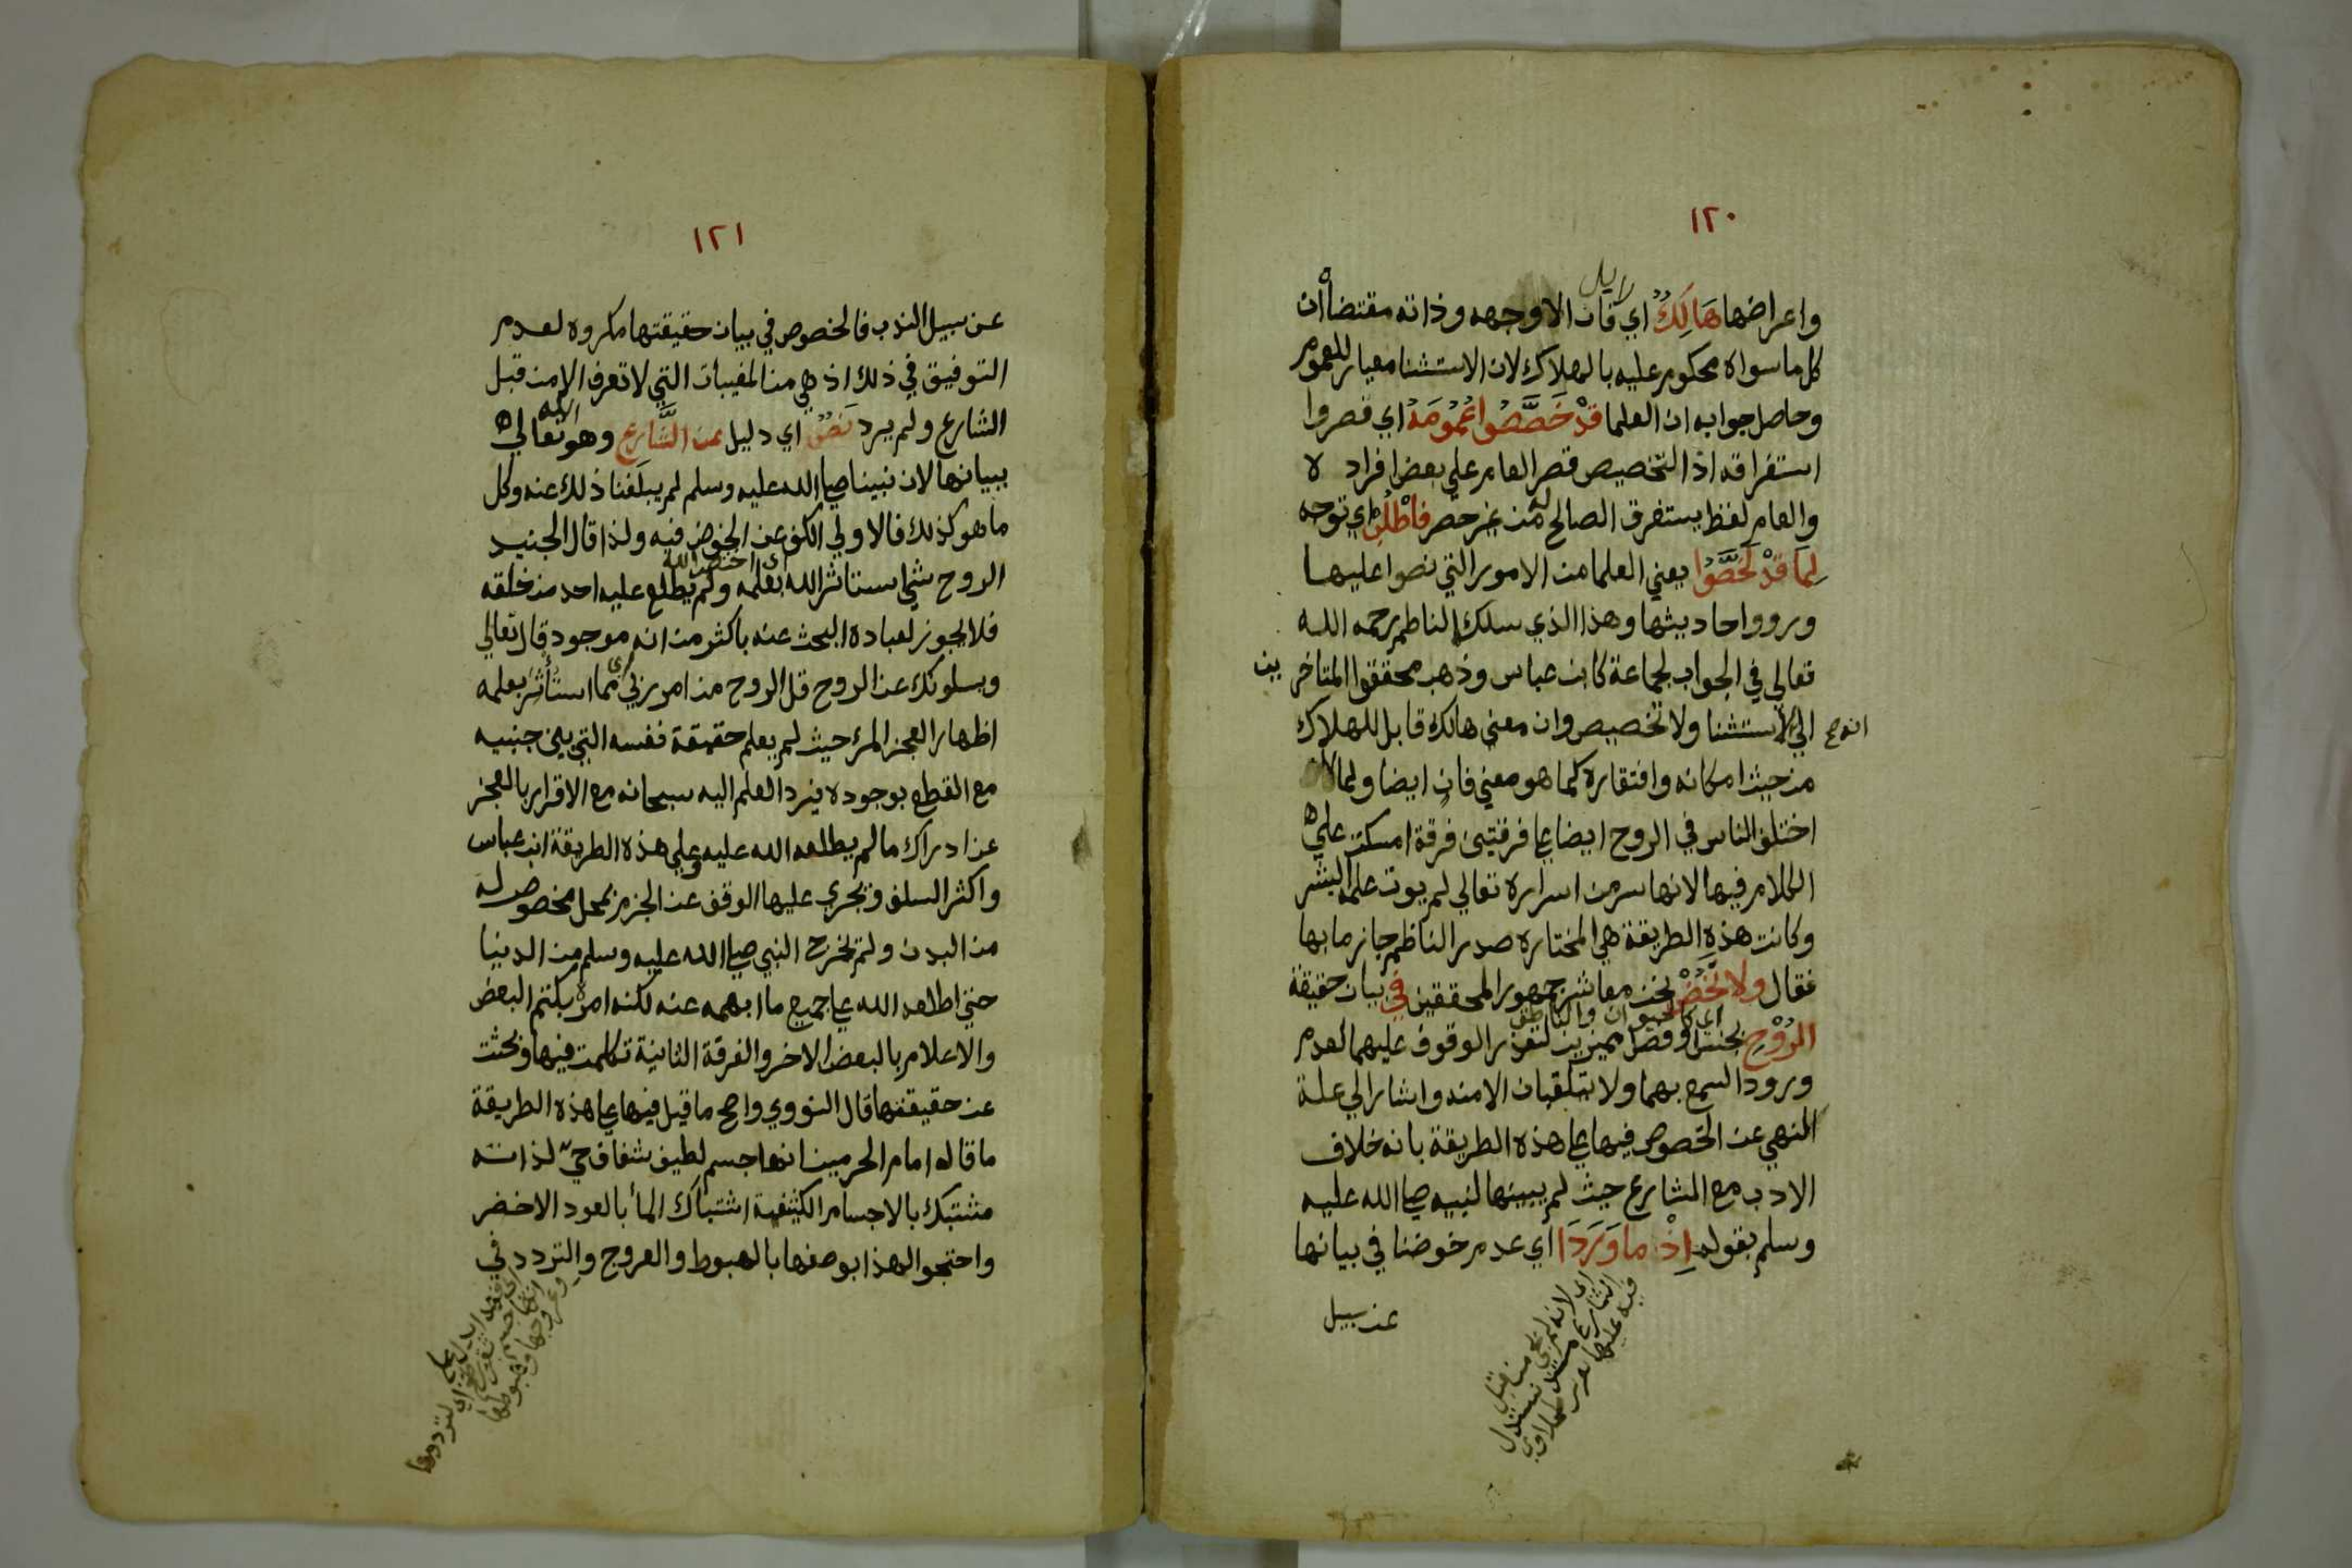 ١٢٠
زايل
واعراضها هَالِكٌ اي فان الا وجهه وذاته مقتضاه ان
كل ما سواه محكوم عليه بالهلاك لان الاستثنا معيار للعموم
وحاصل جوابه ان العلما قَدْ خَصَّصُوا عُمُومَهُ اي قصروا
استغراقه اذ التخصيص قصر العام علي بعض افراده
والعام لفظ يستغرق الصالح له من غير حصر فاطْلُبْ اي توجه
لِمَا قَدْ لَخَّصُوا يعني العلما من الامور التي نصوا عليها
ورووا احاديثها وهذا الذي سلكه الناظم رحمه الله
تعالي في الجواب لجماعة كابن عباس وذهب محققوا المتاخرين
الي ان لا استثنا ولا تخصيص وان معني هالك قابل للهلاك
من حيث امكانه وافتقاره كما هو معني فان ايضا ولما
اختلف الناس في الروح ايضا علي فرقتين فرقة امسكت علي
الكلام فيها لانها سر من اسراره تعالي لم يوت علمه البشر
وكانت هذه الطريقة هي المختارة صدر الناظم جازما بها
فقال ولا نَخُضْ نحن معاشر جمهور المحققين في بيان حقيقة
اي كالحيوان والناطق
الرُّوْحِ بجنس او فصل مميزين لتعذر الوقوف عليهما لعدم
ورود السمع بهما ولا يتلقيان الا منه واشار الي علة
النهي عن الخوض فيها علي هذه الطريقة بانه خلاف
الادب مع الشارع حيث لم يبينها لنبيه صلي الله عليه
وسلم بقوله اِذْ مَا وَرَدَا اي عدم خوضنا في بيانها
اي لانه لم يجي من قبل
الشارع
عن سبيل
١٢١
عن سبيل الندب فالخوض في بيان حقيقتها مكروه لعدم
التوفيق في ذلك اذ هي من المغيبات التي لا تعرف الا من قبل
الشارع ولم يرد نَصٌّ اي دليل عن الشَّارِعِ وهو الله تعالي
ببيانها لان نبينا صلي الله عليه وسلم لم يبلغنا ذلك عنه وكل
ما هو كذلك فالاولي الكف عن الخوض فيه ولذا قال الجنيد
اي اختص الله
الروح شي استاثر الله بعلمه ولم يطلع عليه احد من خلقه
فلا يجوز لعباده البحث عنه باكثر من انه موجود قال تعالي
ويسلونك عن الروح قل الروح من امر ربي اي مما استأثر بعلمه
اظهار العجز المرء حيث لم يعلم حقيقة نفسه التي بين جنبيه
مع القطع بوجوده فيرد العلم اليه سبحانه مع الاقرار بالعجز
عن ادراك ما لم يطلعه الله عليه وعلي هذه الطريقة ابن عباس
واكثر السلف وتجري عليها الوقف عن الجزم بمحل مخصوص له
من البدن ولم يخرج النبي صلي الله عليه وسلم من الدنيا
حتي اطلعه الله علي جميع ما ابهمه عنه لكنه امره بكتم البعض
والاعلام بالبعض الاخر والفرقة الثانية تكلمت فيها وبحثت
عن حقيقتها قال النووي واصح ما قيل فيها علي هذه الطريقة
ما قاله امام الحرمين انها جسم لطيف شفاف حيّ لذاته
مشتبك بالاجسام الكثيفة اشتباك المأ بالعود الاخضر
واحتجوا لهذا بوصفها بالهبوط والعروج والتردد في